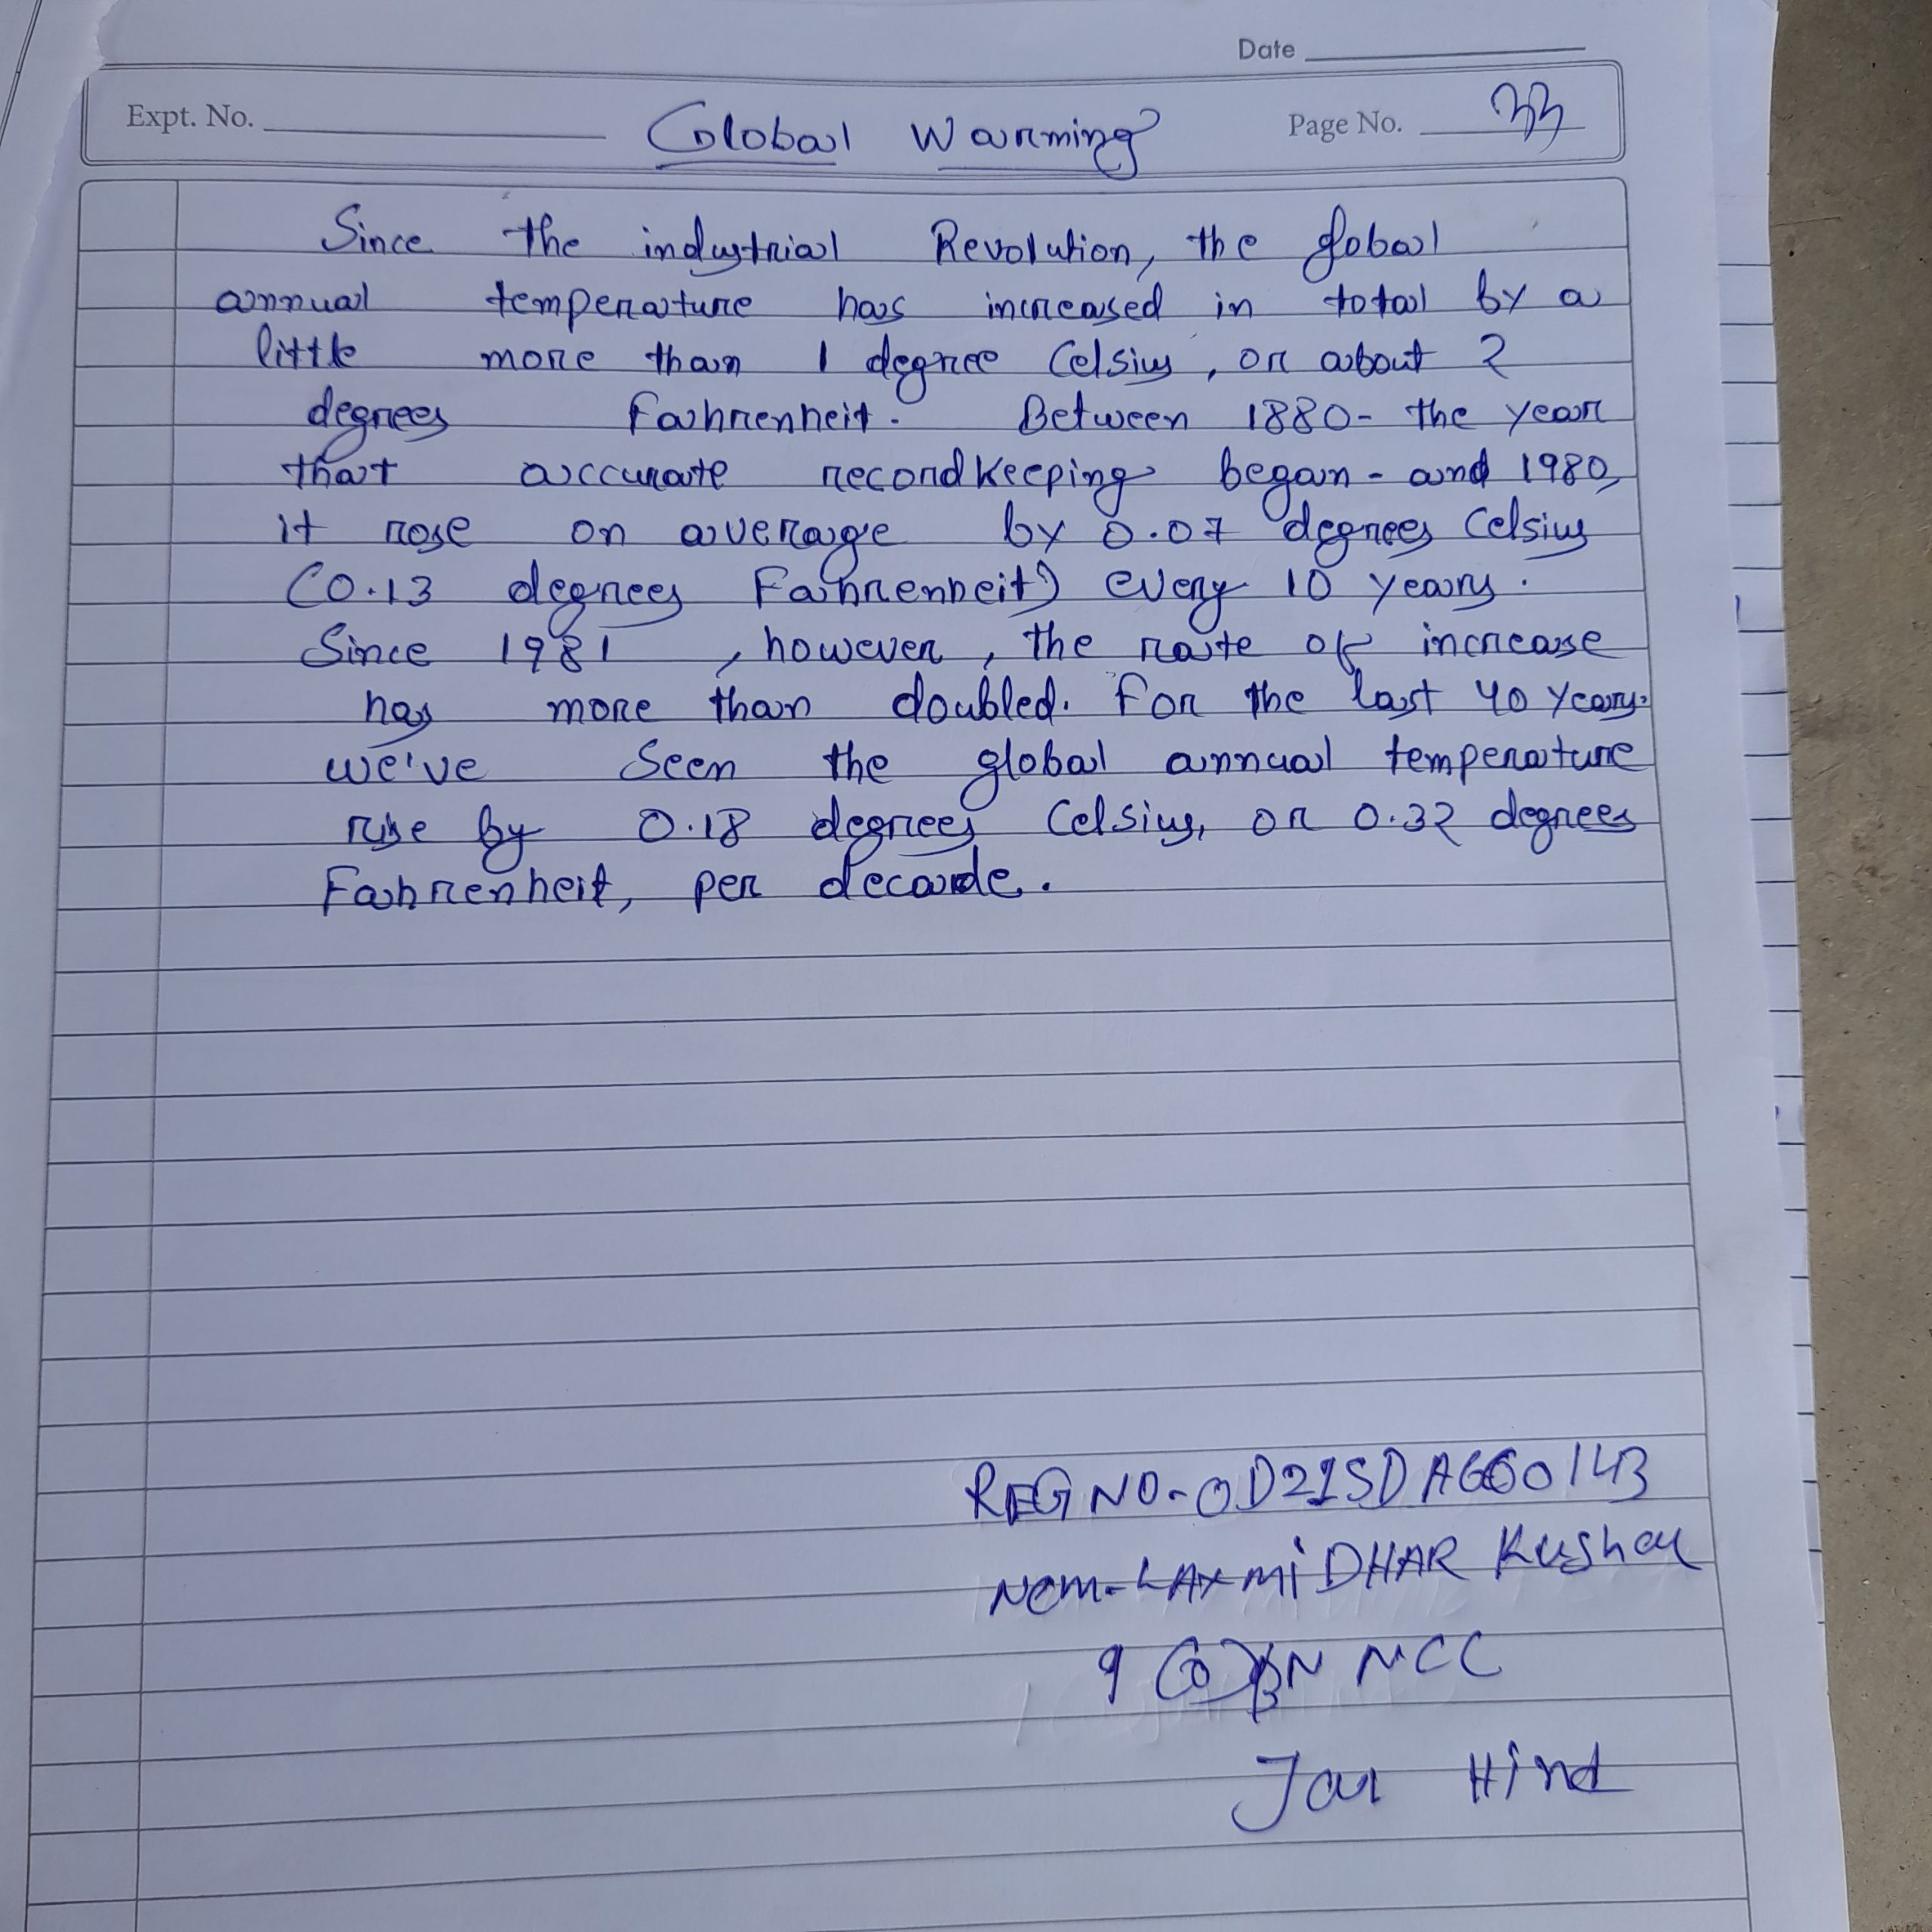 Date
Expt. No. Global Warming Page No. 33
Since the industrial Revolution, the global
annual temperature has increased in total by a
little more than 1 degree Celsius, or about 2
degrees Fahrenheit. Between 1880- the year
that accurate recordkeeping began - and 1980,
it rose on average by 0.07 degrees Celsius
(0.13 degrees Fahrenheit) every 10 years.
Since 1981, however, the rate of increase
has more than doubled. For the last 40 years.
we've seen the global annual temperature
rise by 0.18 degrees Celsius, or 0.32 degrees
Fahrenheit, per decade.
REG NO-OD21SDA660143
Nam-LAXMiDHAR Kushal
9 (O) BN NCC
Jai Hind